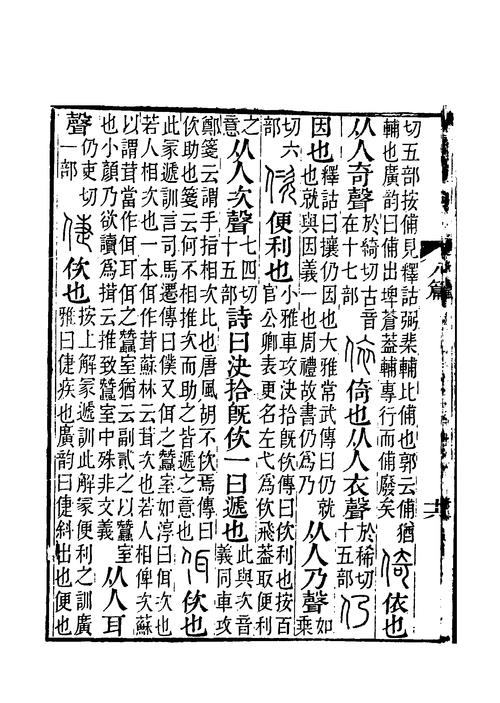 切五部按俌見釋詁弼棐輔比俌也郭云俌猶輔也廣韵曰俌出埤蒼蓋輔專行而俌廢矣倚依也
从人奇聲於綺切古音在十七部依倚也从人衣聲於稀切十五部仍
因也釋詁曰攘仍因也大雅常武傳曰仍就也就與因義一也周禮故書仍爲乃从人乃聲如乘
切六部佽便利也小雅車攻決拾旣佽傳曰佽利也按百官公卿表更名左弋爲佽飛蓋取便利
之意从人次聲七四切十五部詩曰決拾旣佽一曰遞也此與次音義同車攻
鄭箋云謂手指相次比也唐風胡不佽焉傳曰佽助也箋云何不相推次而助之皆遞之意也佴佽也
此冡遞訓言司馬遷傳曰僕又佴之蠶室如淳曰佴次也若人相次也一本佴作茸蘇林云茸次也若人相俾次蘇
以謂茸當作佴耳佴之蠶室猶云副貳之以蠶室也小顏乃欲讀爲揖云推致蠶室中殊非文義从人耳
聲仍吏切一部倢佽也按上解冡遞訓此解冡便利之訓廣雅曰倢疾也廣韵曰倢斜出也便也
八篇
十六